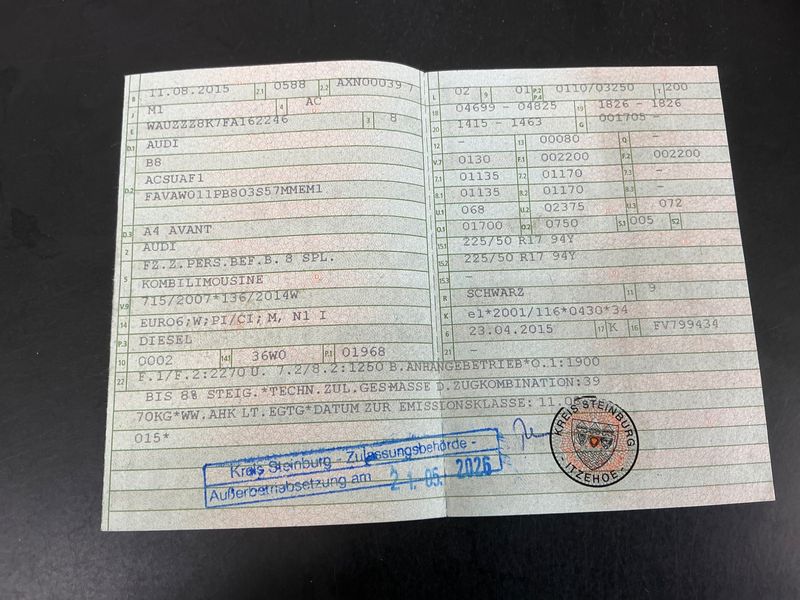 B 11.08.2015 2.1 0588 2.2 AXN00039 7
J M1 4 AC
E WAUZZZ8K7FA162246 3 8
D.1 AUDI
B8
D.2 ACSUAF1
FAVAW011PB803S57MMEM1
D.3 A4 AVANT
2 AUDI
FZ.Z.PERS.BEF.B. 8 SPL.
5 KOMBILIMOUSINE
V.9 715/2007*136/2014W
14 EURO6;W;PI/CI; M, N1 I
P.3 DIESEL
10 0002 14.1 36W0 P.1 01968
22 F.1/F.2:2270 U. 7.2/8.2:1250 B.ANHÄNGEBETRIEB*O.1:1900
BIS 8% STEIG.*TECHN.ZUL.GES-MASSE D.ZUGKOMBINATION:39
70KG*WW.AHK LT.EGTG*DATUM ZUR EMISSIONSKLASSE: 11.08.2
015*
L 02 9 01 P.2 P.4 0110/03250 T 200
18 04699 - 04825 19 1826 - 1826
20 1415 - 1463 G 001705 -
12 - 13 00080 Q -
V.7 0130 F.1 002200 F.2 002200
7.1 01135 7.2 01170 7.3 -
8.1 01135 8.2 01170 8.3 -
U.1 068 U.2 02375 U.3 072
O.1 01700 O.2 0750 S.1 005 S.2
15.1 225/50 R17 94Y
15.2 225/50 R17 94Y
15.3 -
R SCHWARZ 11 9
K e1*2001/116*0430*34
6 23.04.2015 17 K 16 FV799434
21 -
Kreis Steinburg - Zulassungsbehörde -
Außerbetriebsetzung am 21. 05. 2026
KREIS STEINBURG
- ITZEHOE -